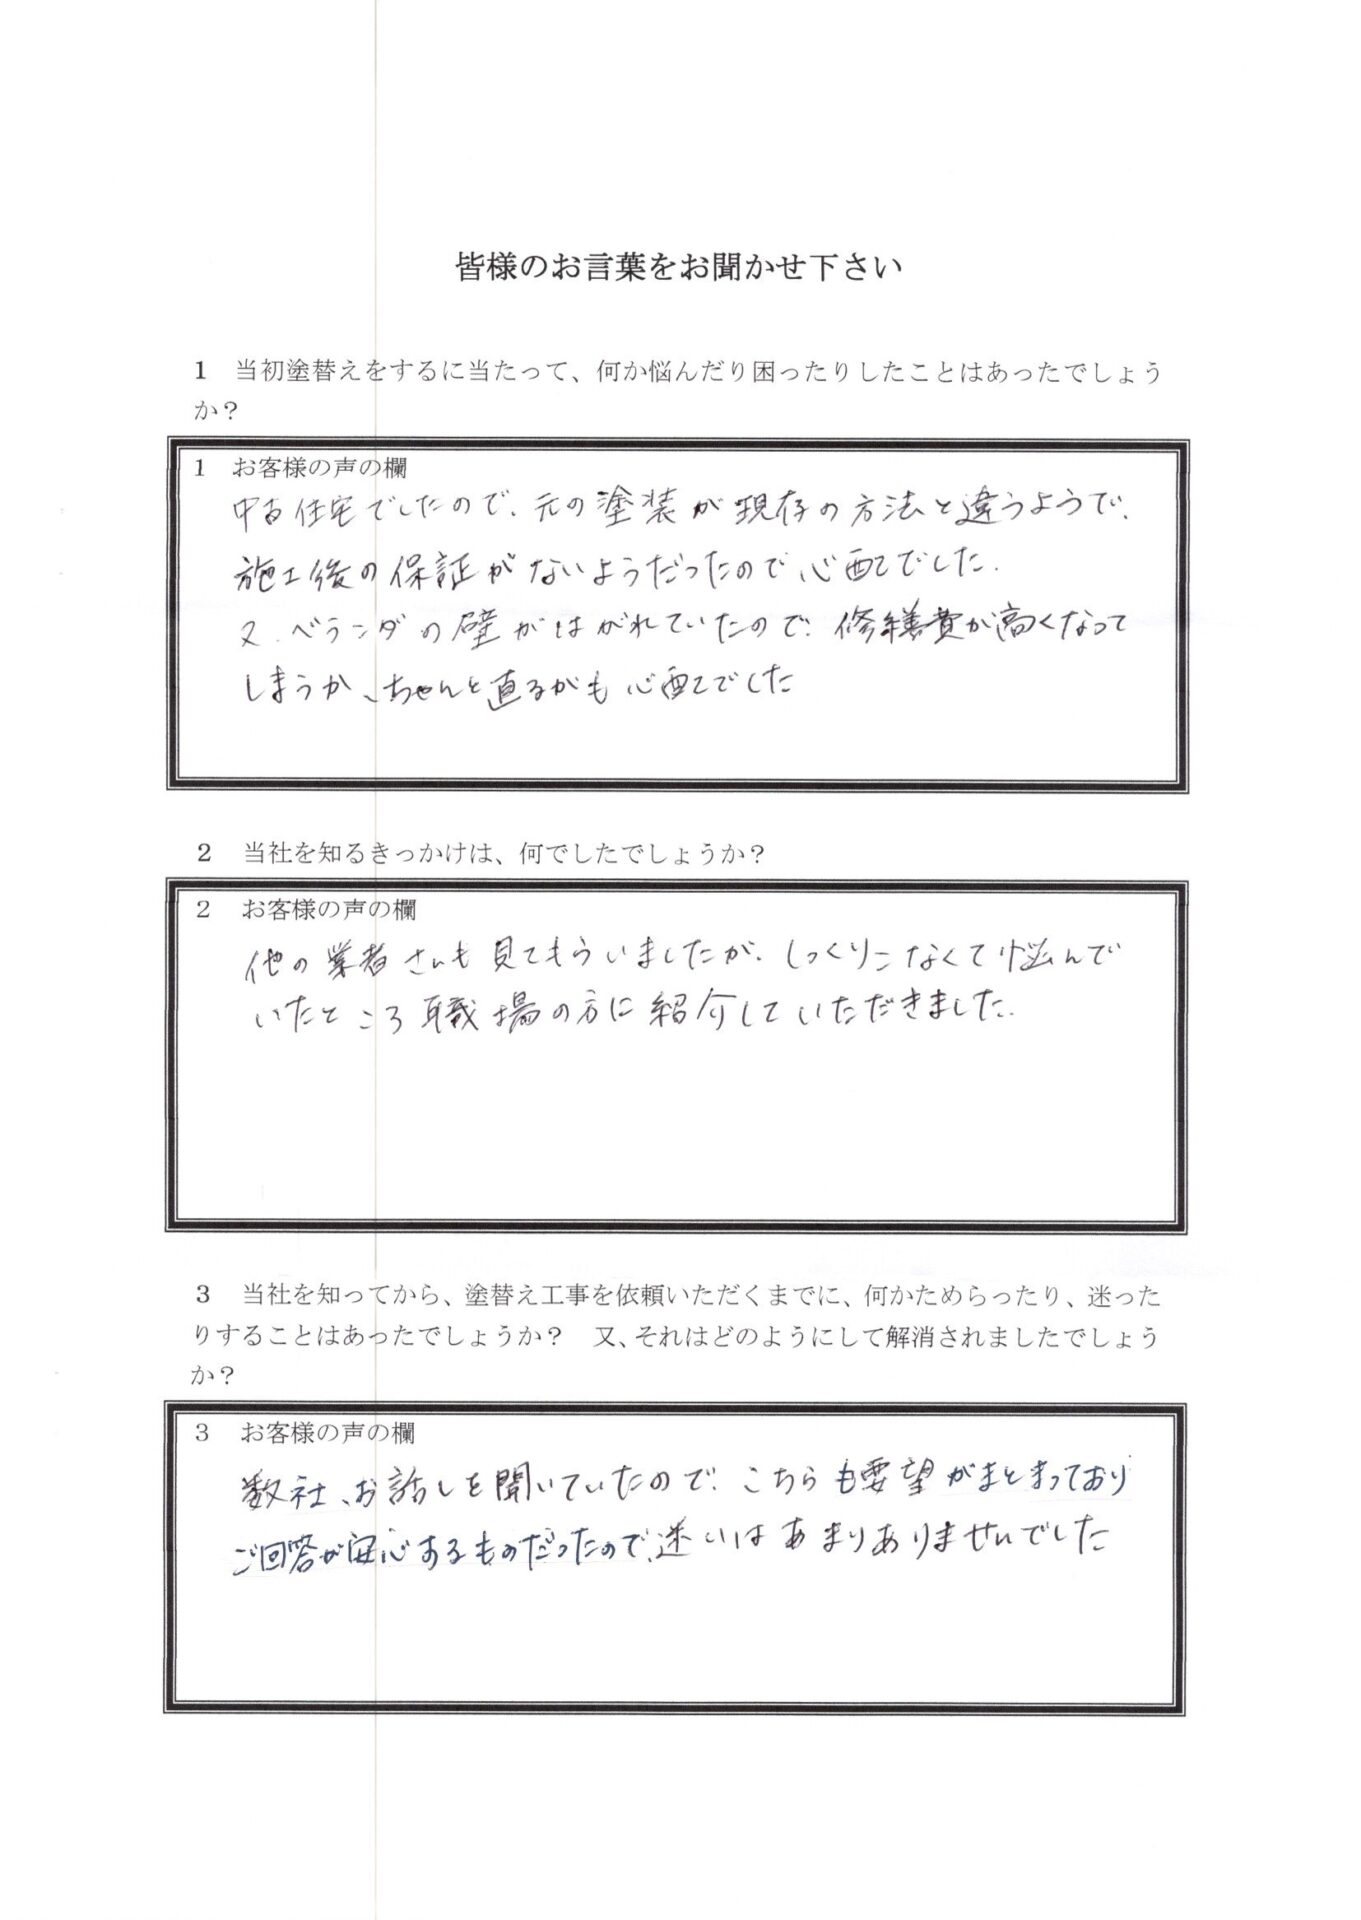 皆様のお言葉をお聞かせ下さい
1　当初塗替えをするに当たって、何か悩んだり困ったりしたことはあったでしょう
か？
1　お客様の声の欄
中古住宅でしたので、元の塗装が現存の方法と違うようで、
施工後の保証がないようだったので心配でした.
又、ベランダの壁がはがれていたので、修繕費が高くなって
しまうか、ちゃんと直るかも心配でした
2　当社を知るきっかけは、何でしたでしょうか？
2　お客様の声の欄
他の業者さんも見てもらいましたが、しっくりこなくて悩んで
いたところ職場の方に紹介していただきました.
3　当社を知ってから、塗替え工事を依頼いただくまでに、何かためらったり、迷った
りすることはあったでしょうか？　又、それはどのようにして解消されましたでしょう
か？
3　お客様の声の欄
数社、お話しを聞いていたので、こちらも要望がまとまっており
ご回答が安心するものだったので、迷いはあまりありませんでした